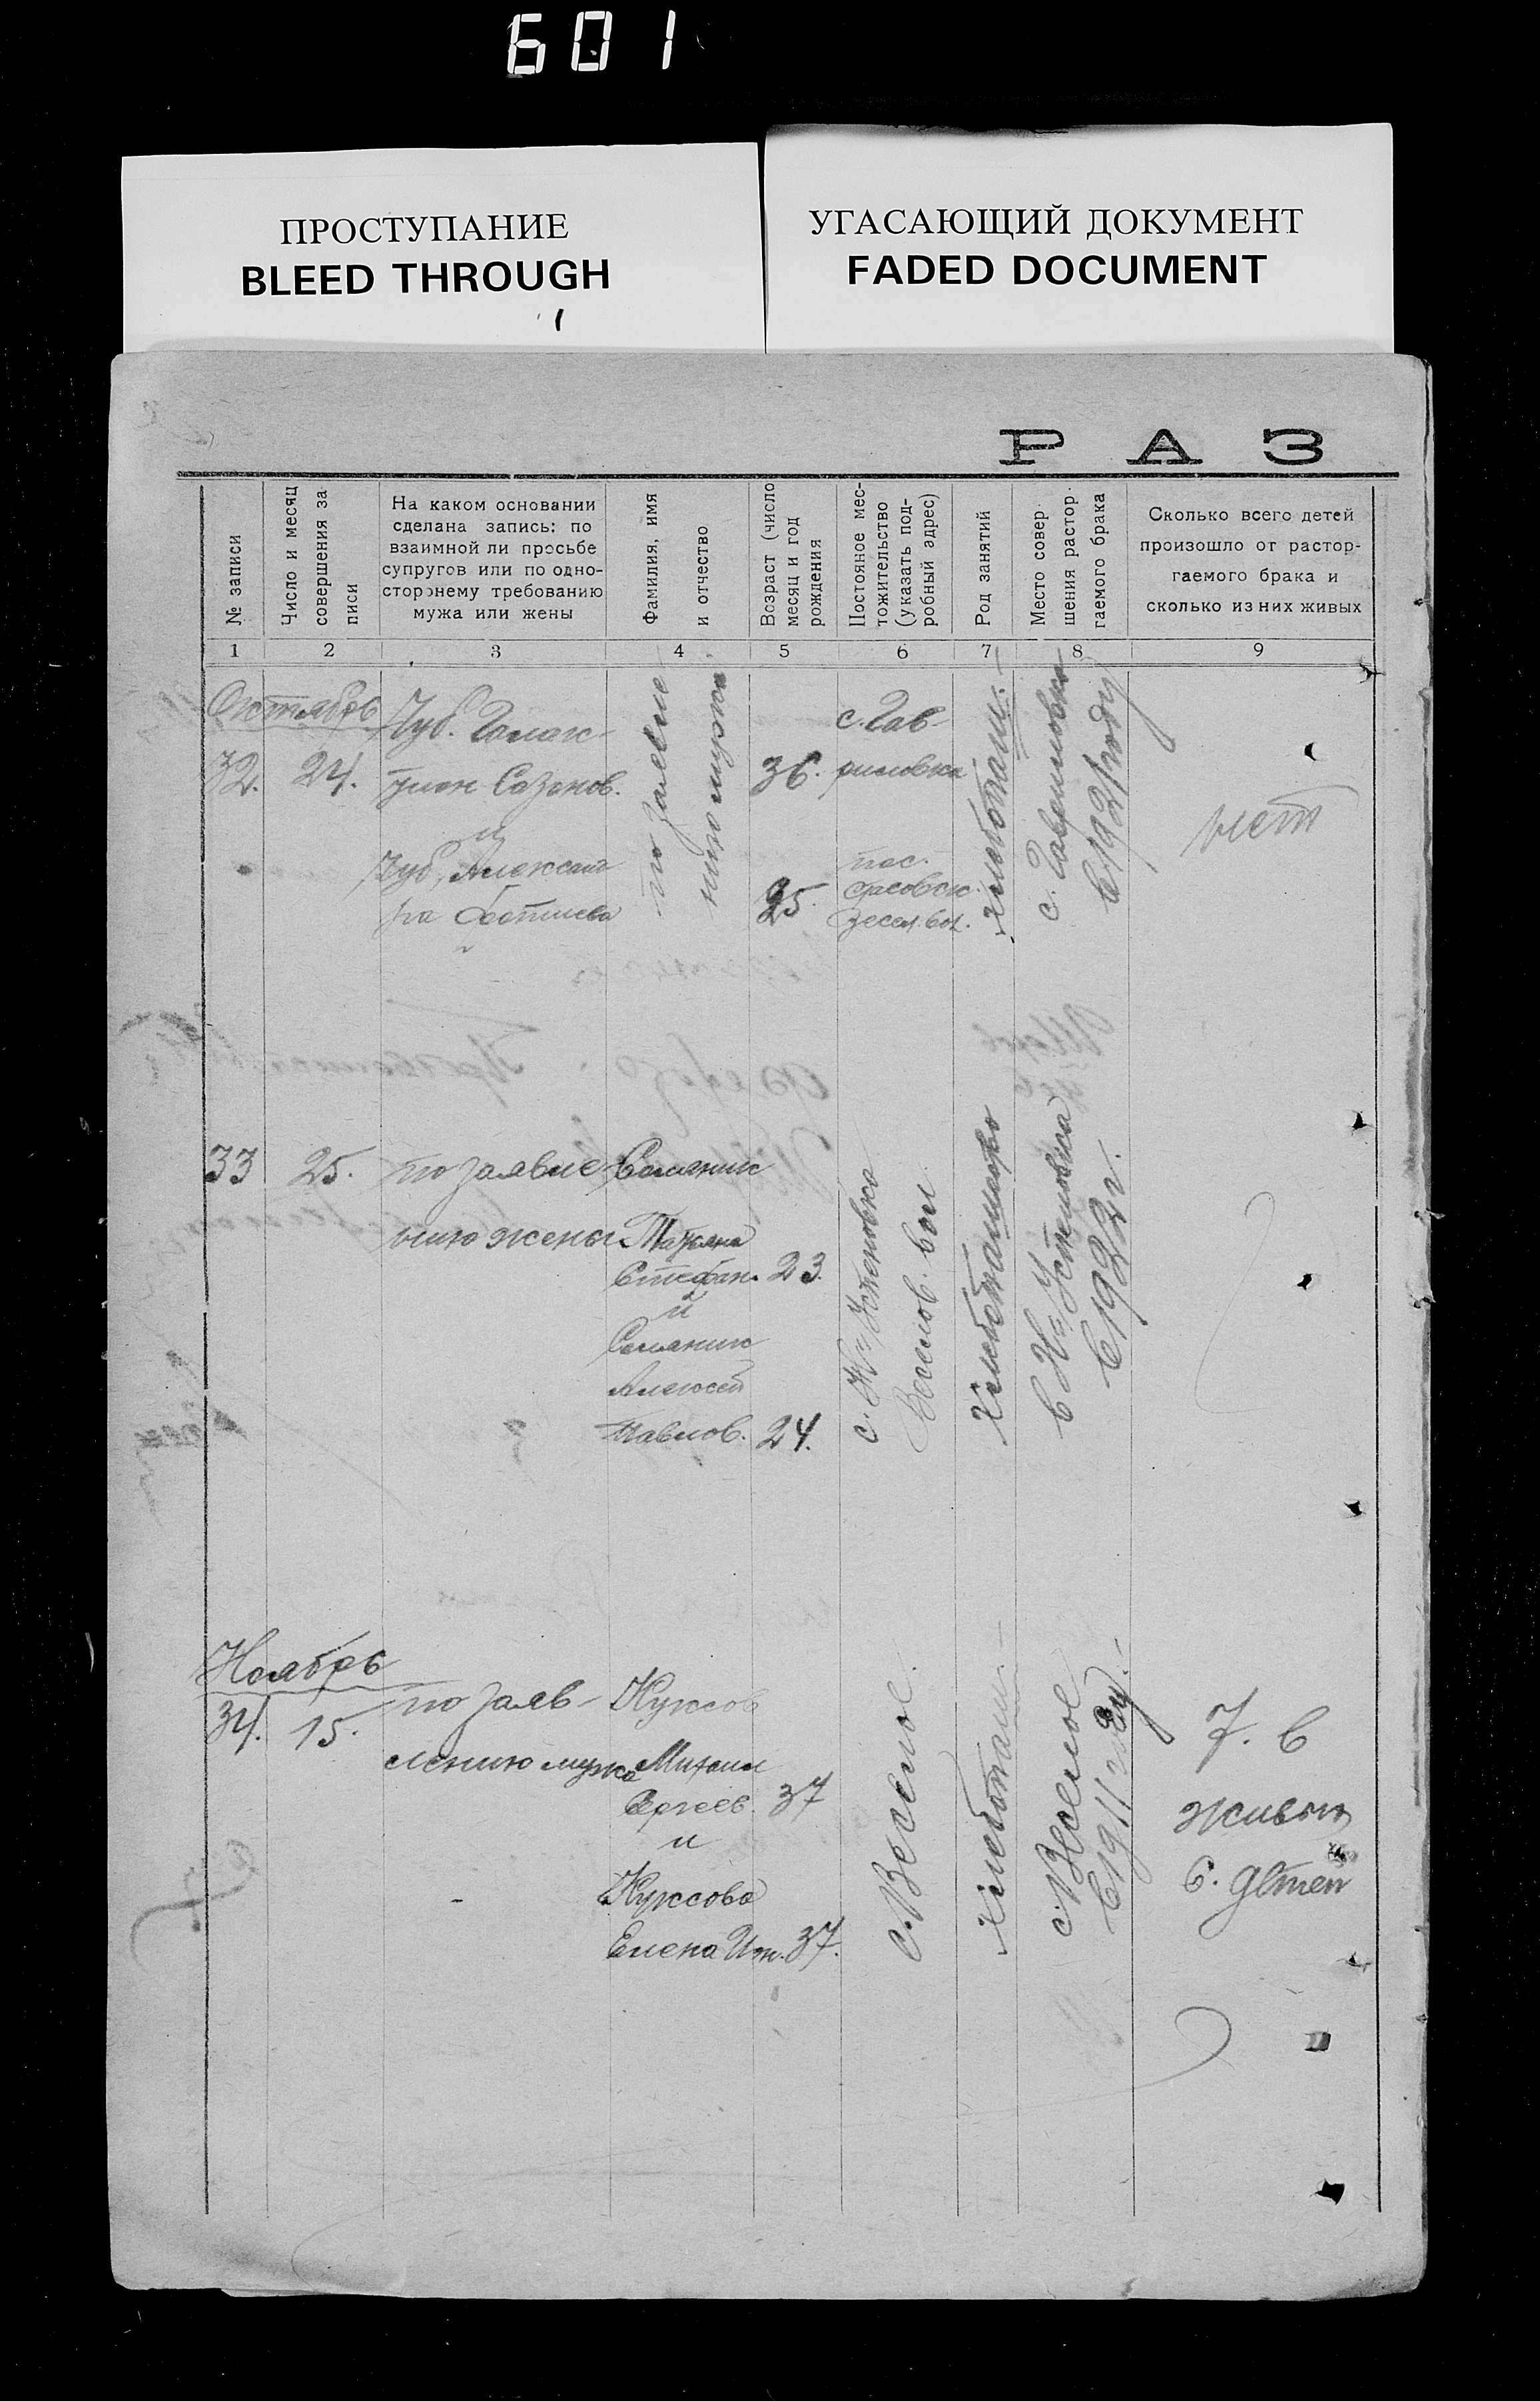 601
ПРОСТУПАНИЕ
BLEED THROUGH
УГАСАЮЩИЙ ДОКУМЕНТ
FADED DOCUMENT
РАЗ
№ записи
Число и месяц
совершения за
писи
На каком основании
сделана запись: по
взаимной ли просьбе
супругов или по одно-
стороннему требованию
мужа или жены
Фамилия, имя
и отчество
Возраст (число
месяц и год
рождения
Постояное мес-
тожительство
(указать под-
робный адрес)
Род занятий
Место совер.
шения растор.
гаемого брака
Сколько всего детей
произошло от растор-
гаемого брака и
сколько из них живых
1 2 3 4 5 6 7 8 9
Октябрь
32. 24.
Чуб.
Созонов.
и
Чуб, Александ
ра
по заявле
нию мужа
36.
25.
с. Гав-
риловка
пос.
хлебопаш.
с. Гавриловка
в 1921 году
нет
33 25.
по заявле
нию жены
Семяник
Татьяна
Стефан. 23.
и
Семяник
Алексей
Павлов. 24.
с. Успеновка
Веселов. вол
хлебопашество
в Успеновка
в 1922 г.
Ноябрь
34. 15.
по заяв-
лению мужа
Куксов
Михаил
Сергеев. 37
и
Куксова
Елена 37.
с. Веселое.
хлебопаш.
с. Веселое
в 1911 году.
7. в
живых
6. детей